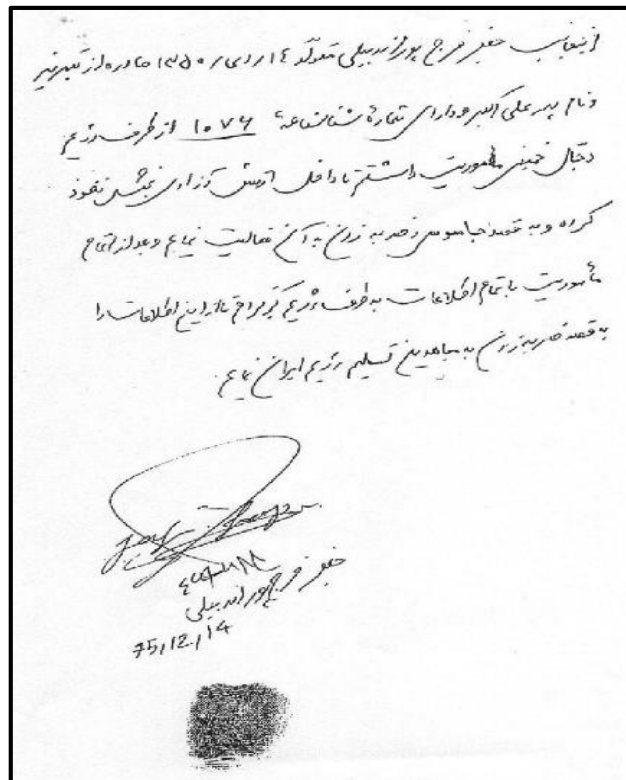 اینجانب جعفر فرج پور اردبیلی متولد ١٤ / دی / ١٣٥٠ صادره از تبریز
و نام پدر علی اکبر و دارای شمارهٔ شناسنامهٔ ١٠٧٦ از طرف رژیم
دجال خمینی مأموریت داشتم تا داخل ارتش آزادی‌بخش نفوذ
کرده و به قصد جاسوسی و ضربه زدن به آن فعالیت نمایم و بعد از اتمام
مأموریت با تمام اطلاعات به طرف رژیم تا این اطلاعات را
به قصد ضربه زدن به مجاهدین تسلیم رژیم ایران نمایم.
جعفر فرج پور اردبیلی
75,12,14